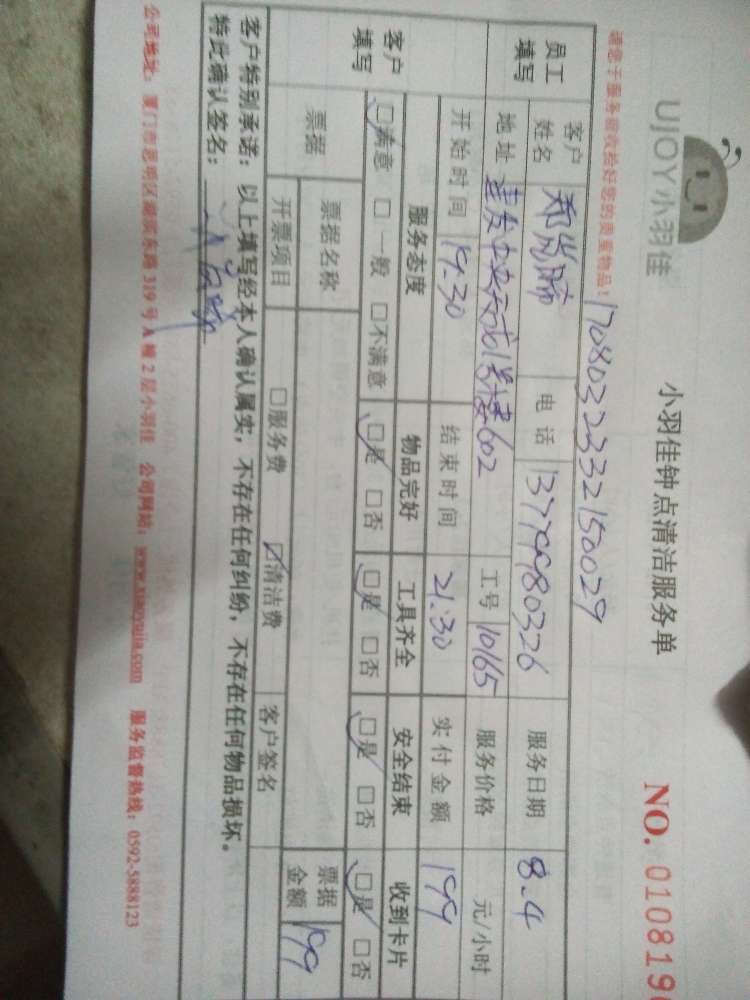 UJOY小羽佳
小羽佳钟点清洁服务单
NO. 010819
请您于服务前收捡好您的贵重物品!
1708032332150029
员工填写 客户姓名 电话 13779980326 服务日期 8.4
地址 602 工号 10165 服务价格 元/小时
客户填写 开始时间 19.30 结束时间 21.30 实付金额 199
服务态度 物品完好 工具齐全 安全结束 收到卡片
☑满意 □一般 □不满意 ☑是 □否 ☑是 □否 ☑是 □否 ☑是 □否
票据 票据名称 票据金额 199
开票项目 □服务费 ☑清洁费 客户签名
客户特别承诺:以上填写经本人确认属实,不存在任何纠纷,不存在任何物品损坏。
特此确认签名:
公司地址:厦门市思明区湖滨东路319号A幢2层小羽佳 公司网站:www.xiaoyujia.com 服务监督热线:0592-5888123